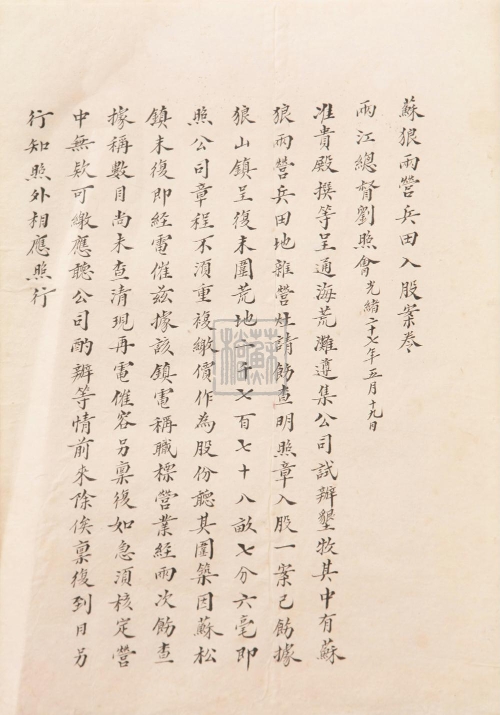 蘇狼兩營兵田入股案卷
兩江總督劉照會光緒二十七年五月十九日
准貴殿撰等呈通海荒灘遵集公司試辦墾牧其中有蘇
狼兩營兵田地雜營灶請飭查明照章入股一案已飭據
狼山鎮呈復未圍荒地二千七百七十八畝七分六毫即
照公司章程不須重複繳價作為股份聽其圍築因蘇松
鎮未復即經電催茲據該鎮電稱職標營業經兩次飭查
據稱數目尚未查清現再電催容另稟復如急須核定營
中無欵可繳應聽公司酌辦等情前來除俟稟復到日另
行知照外相應照行